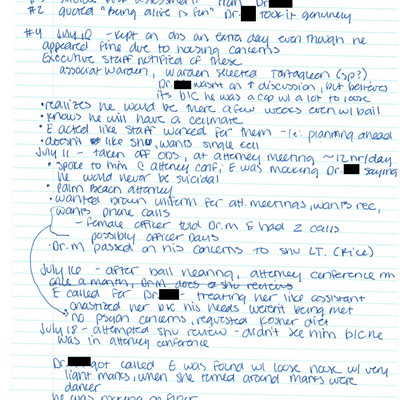 #2 quoted "Being alive is fun" Dr. took it genuinely
#4 July 10 - kept on obs an extra day even though he
appeared fine due to housing concerns
Executive staff notified of these
associat warden, warden selected Tartaglione (sp?)
Dr. wasn't on ↑ discussion, but believes
its b/c he was a cop w/ a lot to lose
• realizes he would be there a few weeks even w/ bail
• knows he will have a cellmate
• E acted like staff worked for them - i.e. planning ahead
• doesn't like SHU, wants single cell
July 11 - taken off obs., at attorney meeting ~12 hr/day
• spoke to him @ attorney conf., E was mocking Dr. saying
he would never be suicidal
• Palm Beach attorney
• wanted brown uniform for att. meetings, wants rec,
wants phone calls
- female officer told Dr. M E had 2 calls
possibly officer Davis
• Dr. M passed on his concerns to SHU LT. (Rice)
July 16 - after bail hearing, attorney conference rm
once a month, Dr. M does a SHU reviews
E called for Dr. - treating her like assistant
chastized her b/c his needs weren't being met
no psych concerns, requested kosher diet
July 18 - attempted SHU review - didn't see him b/c he
was in attorney conference
Dr. got called E was found w/ loose noose w/ very
light marks, when she turned around marks were
darker
he was on floor